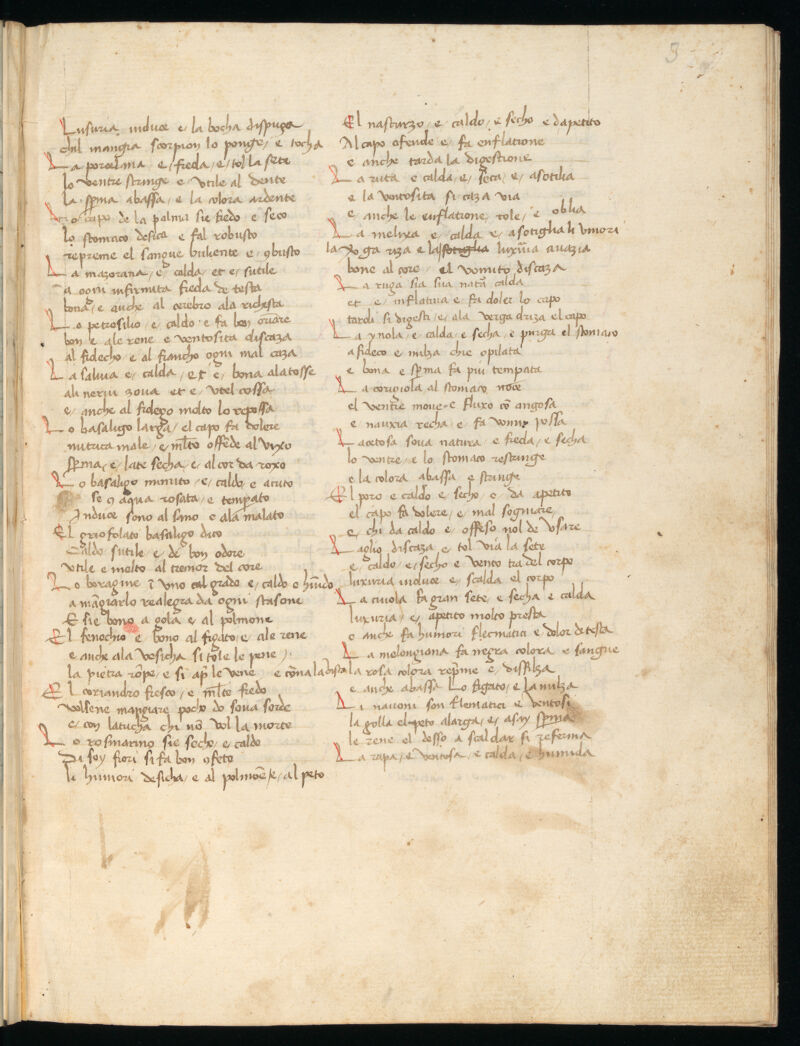 3
Lusuria induce e la bocha dispuza
chil mangia scorpion lo ponge e tocha
La porcelina e freda e tol la sete
lo ventre stringe e utile al dente
la sperma abassa e la colora ardente
capo de la palma sie fredo e seco
lo stomaco desica e fal robusto
repreme el sangue buliente e combusto
La mazorana e calda et e sutile
a ogni infirmita freda de testa
bona e anche al cerebro ala richesta
Lo petrosilio e caldo e fa ben
bon e ale rene e ventosita discaza
al fidecho e al fiancho ogni mal caza
La salvia e calda et e bona ala tosse
ali nervi zova et e utel cossa
e anche al fidego molto lo repossa
Lo basaligo larga el capo fa dolere
nutrica male e molto offede al vixo
sperma e late secha e al cor da roxo
Lo basaligo minuto e caldo e acuto
se con aqua rosata e temperato
Induce sono al sano e ala malato
El garofolato basaligo dico
Caldo sutile e de bon odore
Utile e molto al tremor del core
Lo boragine i uno cal grado e caldo e humido
a mangiarlo realegra da ogni stasone
E sie bono a gola e al polmone
El fenochio e bono al figato e ale rene
e anche ala vesicha si tole le pene
la pietra rompe e si apre le vene e conma la vista
El coriandro fresco e molto fredo
volsene mangiare pocho do soua sorde
e con latucha chi non vol la morte
Lo rosmarino sie secho e caldo
Di soy fiori si fa bon confeto
li humori desicha e al polmone e al peto
El nasturzo e caldo e secho e da petito
Al capo ofende e fa enflatione
e anche tarda la digestione
La ruta e calda e seca e asotilia
e la ventosita si caza via
e anche le enflatione tole e oblia
La melixa e calda e asotiglia li umori
la riza e la sotiglia luxuria avazia
bone al core el vomito discaza
La ruga sia sua natura calda
et e inflatura e fa doler lo capo
tardi si digesti e ala verga driza el capo
La ynola e calda e secha e purga el stomaco
a fideco e milza che opilata
e bona e sperma fa piu tempata
La corigiola al stomaco noce
el ventre move e fluxo con angosa
e nauxia recha e fa vomir possa
Lacetosa soua natura e freda e secha
lo ventre e lo stomaco restringe
e la colora abassa e stringe
El poro e caldo e secho e da apetito
el capo fa dolere e mal sogniare
e chi da caldo e offeso nol de usare
Laglio discaza e tol via la sete
e caldo e secho e vento tra del corpo
luxuria induce e scalda el corpo
La civola fa gran sete e secha e calda
luxuria e apetito molto presta
e anche fa humori flecmatici e dolor de testa
La melongiana fa negra colora e sangue
la rosa colora repreme e dissilza
e anche abassa lo figato e la milza
Li navoni son flematici e ventosi
la golla el peto alarga e asay sperma
le rene el desso a scaldar si referma
La rapa e ventosa e calda e humida